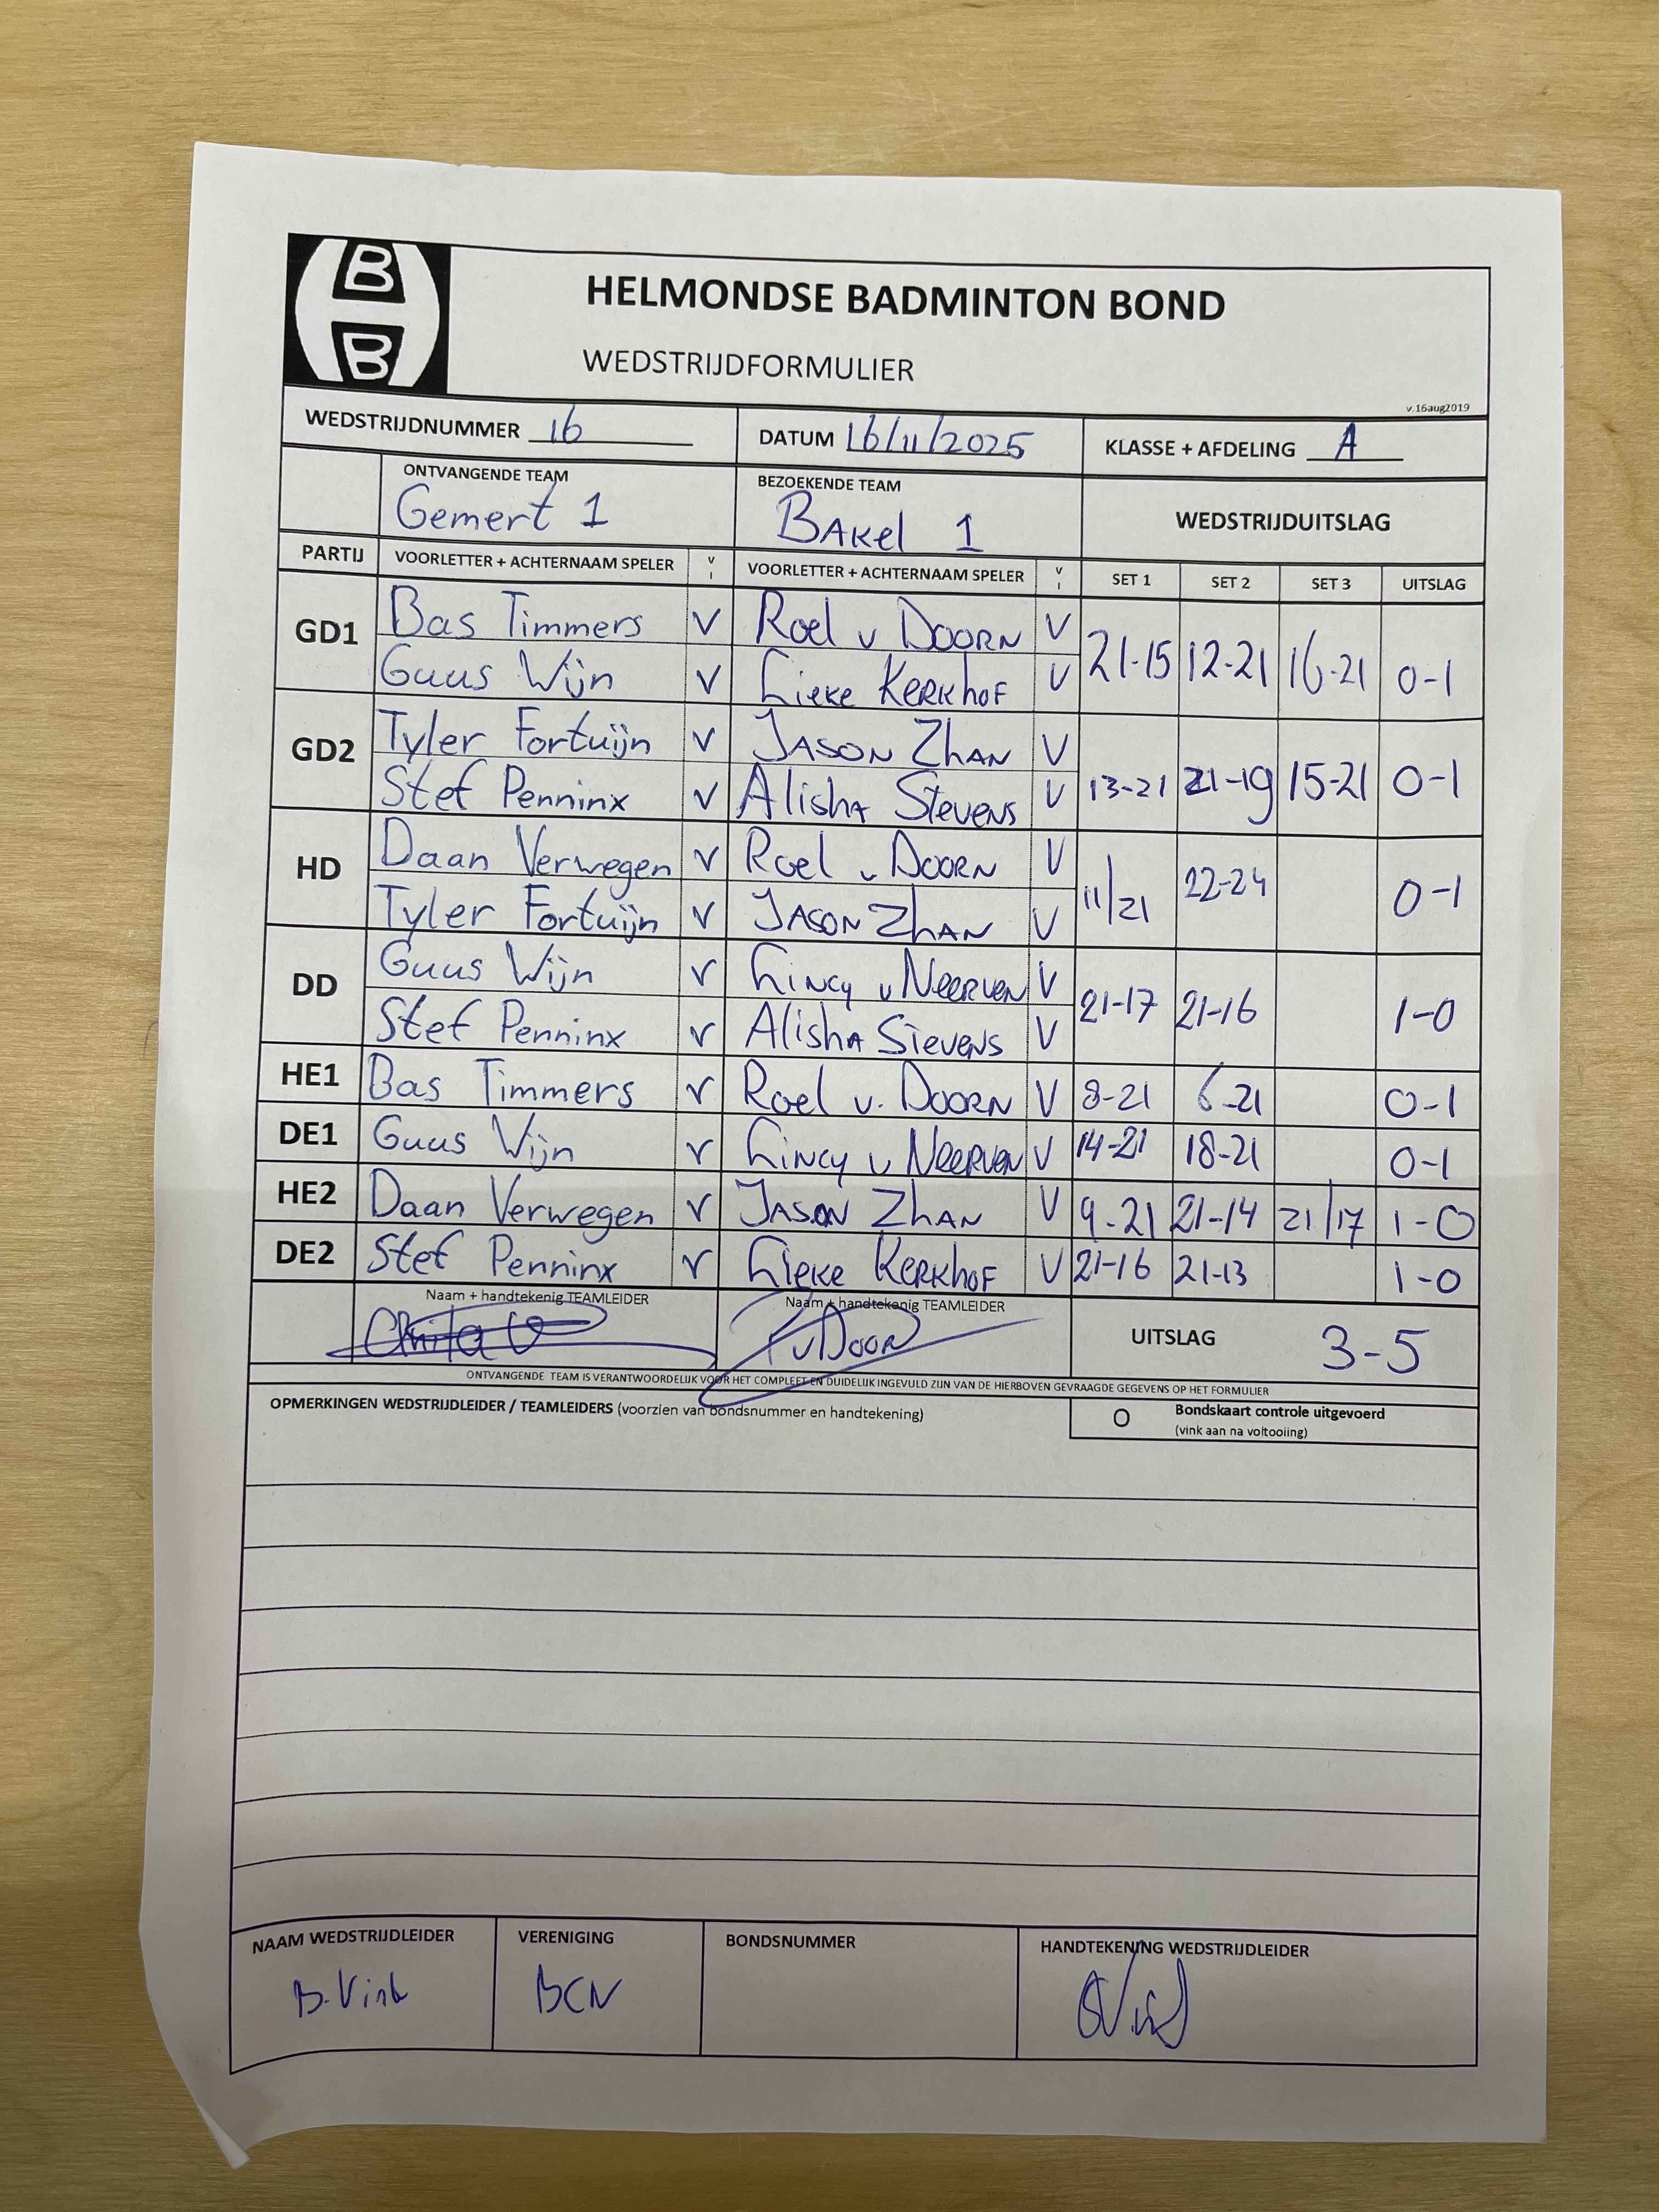 B
B
HELMONDSE BADMINTON BOND
WEDSTRIJDFORMULIER
v.16aug2019
WEDSTRIJDNUMMER 16 DATUM 16/11/2025 KLASSE + AFDELING A
ONTVANGENDE TEAM BEZOEKENDE TEAM
Gemert 1 BAKel 1 WEDSTRIJDUITSLAG
PARTIJ VOORLETTER + ACHTERNAAM SPELER V I VOORLETTER + ACHTERNAAM SPELER V I SET 1 SET 2 SET 3 UITSLAG
GD1 Bas Timmers V Roel v DOORN V 21-15 12-21 16-21 0-1
Guus Wijn V Lieke KERKHOF V
GD2 Tyler Fortuijn V JASON ZHAN V 13-21 21-19 15-21 0-1
Stef Penninx V Alisha Stevens V
HD Daan Verwegen V Roel v DOORN V 11/21 22-24 0-1
Tyler Fortuijn V JASON ZHAN V
DD Guus Wijn V Lincy v NEERVEN V 21-17 21-16 1-0
Stef Penninx V Alisha Stevens V
HE1 Bas Timmers V Roel v. DOORN V 8-21 6-21 0-1
DE1 Guus Wijn V Lincy v NEERVEN V 14-21 18-21 0-1
HE2 Daan Verwegen V JASON ZHAN V 9-21 21-14 21/17 1-0
DE2 Stef Penninx V Lieke KERKHOF V 21-16 21-13 1-0
Naam + handtekenig TEAMLEIDER Naam + handtekenig TEAMLEIDER
vDOORN UITSLAG 3-5
ONTVANGENDE TEAM IS VERANTWOORDELIJK VOOR HET COMPLEET EN DUIDELIJK INGEVULD ZIJN VAN DE HIERBOVEN GEVRAAGDE GEGEVENS OP HET FORMULIER
OPMERKINGEN WEDSTRIJDLEIDER / TEAMLEIDERS (voorzien van bondsnummer en handtekening) O Bondskaart controle uitgevoerd
(vink aan na voltooiing)
NAAM WEDSTRIJDLEIDER VERENIGING BONDSNUMMER HANDTEKENING WEDSTRIJDLEIDER
B.Vink BCN